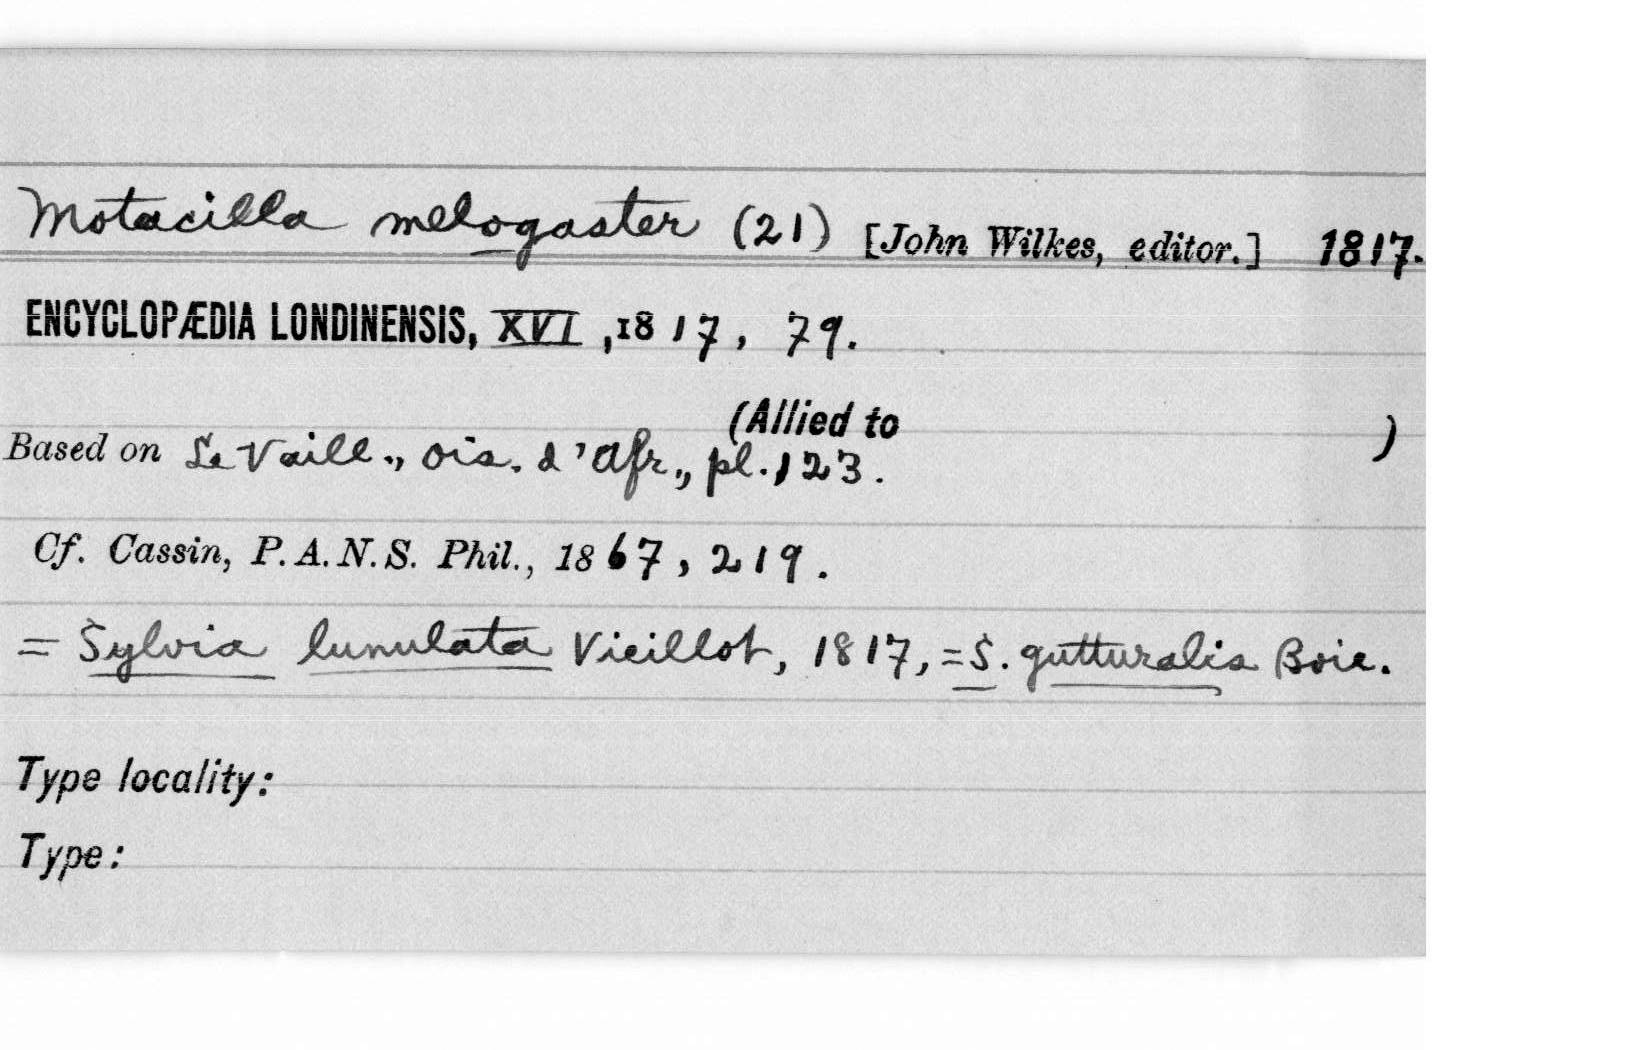 Motacilla melogaster (21) [John Wilkes, editor.] 1817.
ENCYCLOPÆDIA LONDINENSIS, XVI, 1817, 79.
(Allied to )
Based on Le Vaill., Ois. d'Afr., pl. 123.
Cf. Cassin, P. A. N. S. Phil., 1867, 219.
= Sylvia lunulata Vieillot, 1817, = S. gutturalis Boie.
Type locality:
Type: